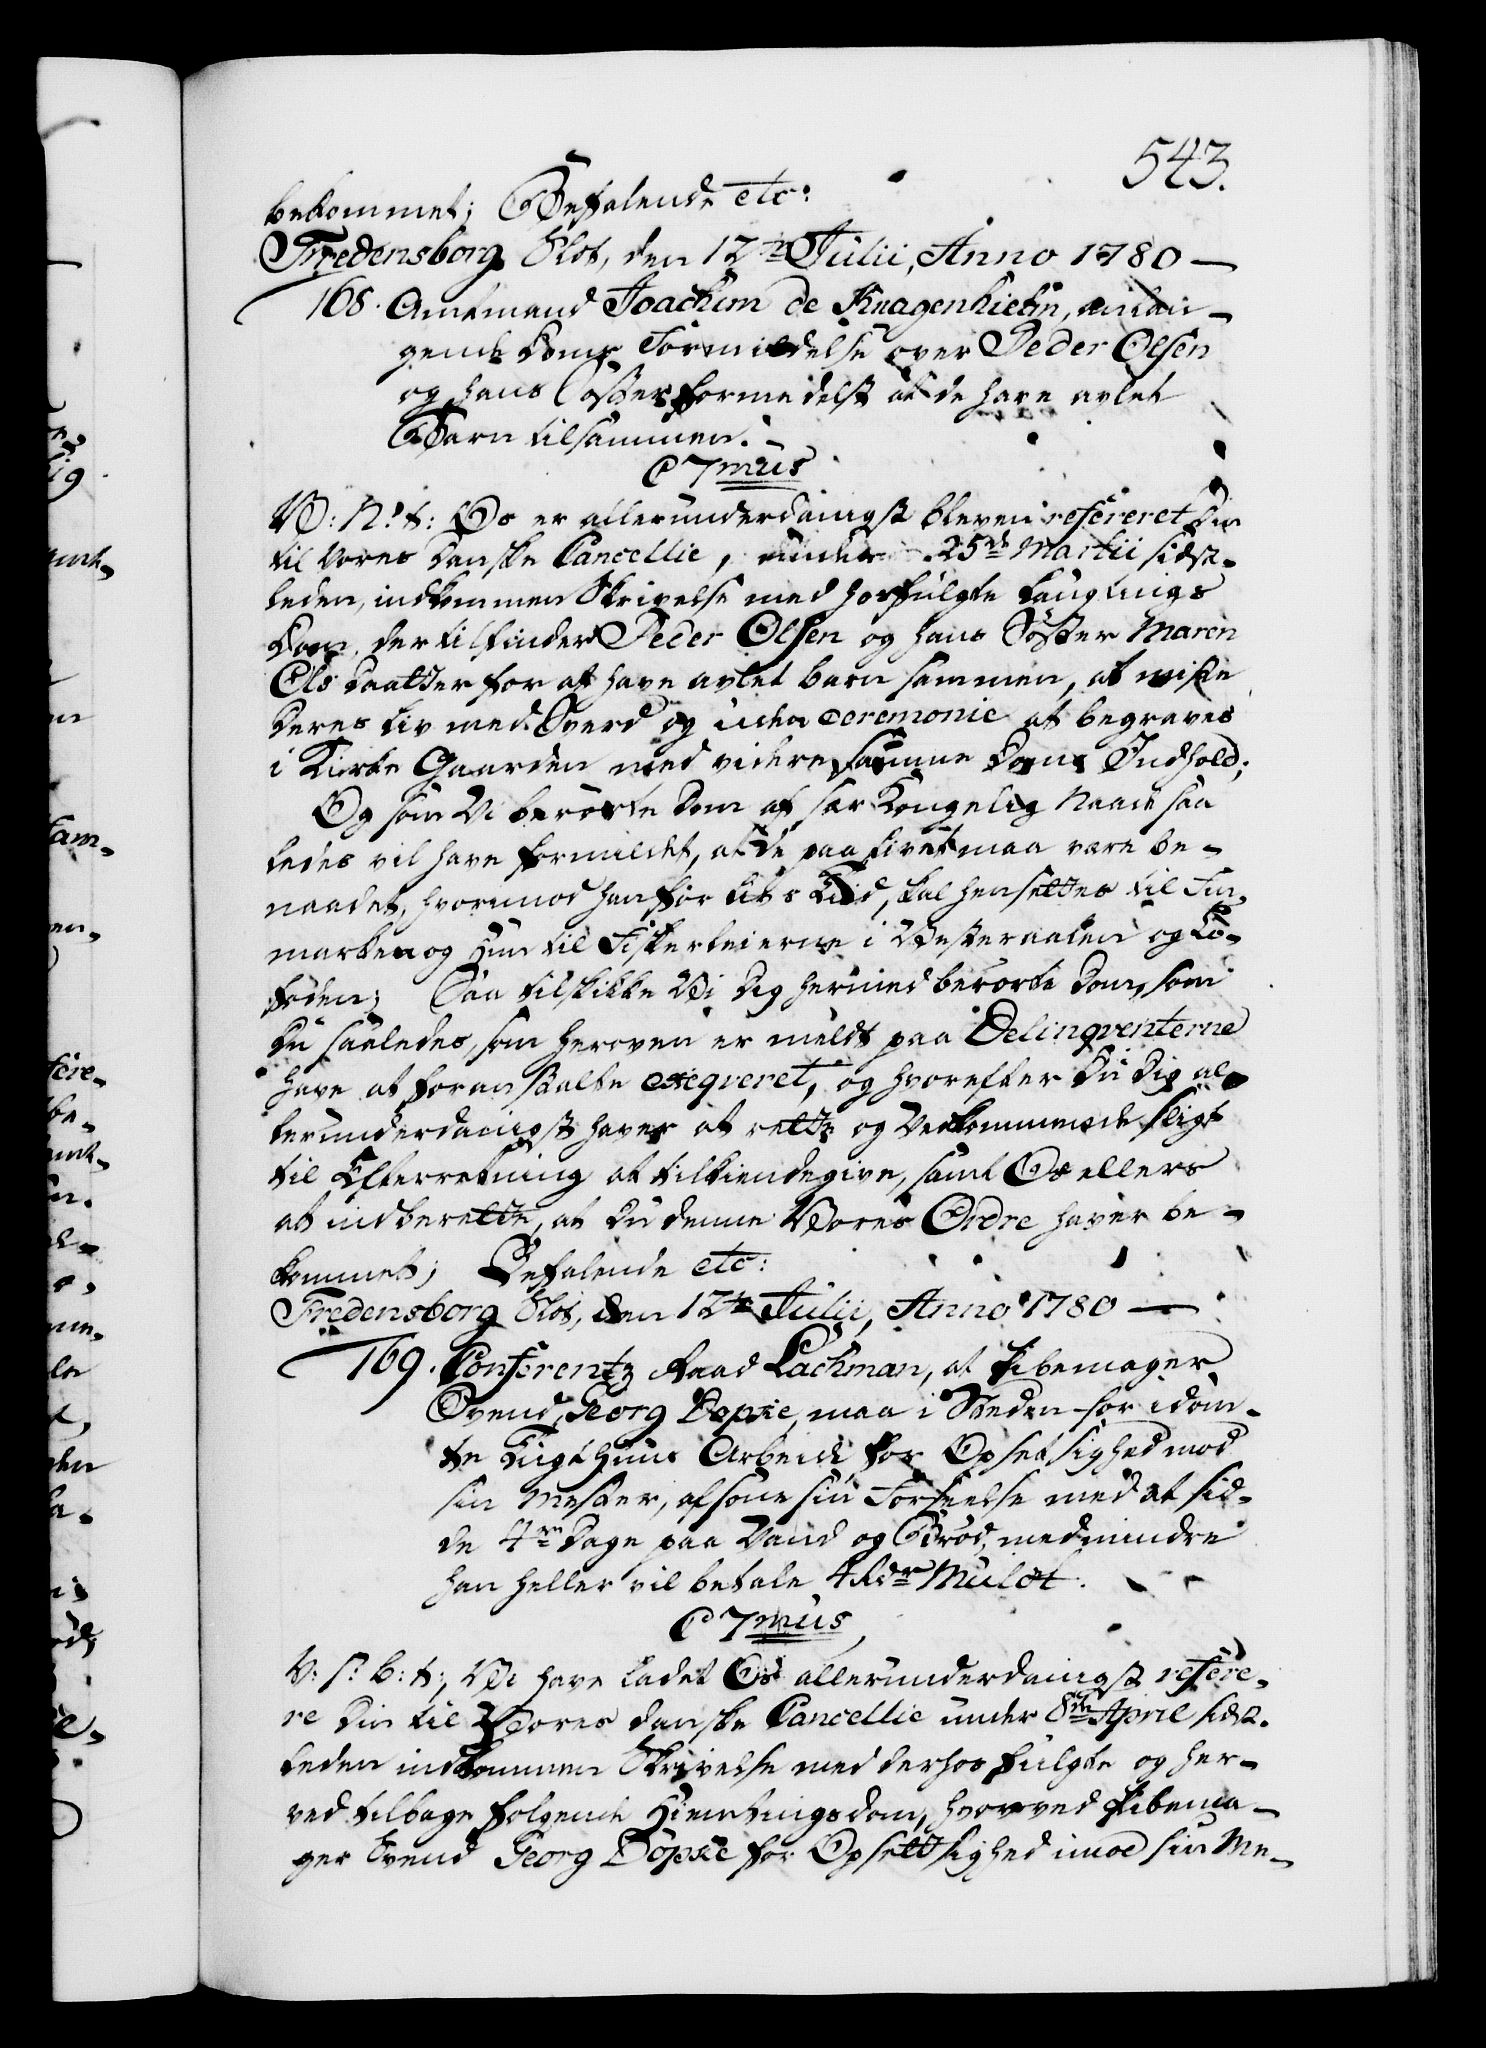 543.
bekommet; Befalende etc:
Fredensborg Slot, den 12te Julii, Anno 1780 —
168. Amtmand Joachim de Knagenhielm, anlan-
gende Doms Formildelse over Peder Olsen
og hans Søster formedelst at de have avlet
Barn tilsammen. -
C 7mus
V: N: t: Os er allerunderdanigst bleven refereret Din
til Vores Danske Cancellie, under 25de Martii sidst-
leden, indkommen Skrivelse med hosfulgte Laugtings
Dom, der tilfinder Peder Olsen og hans Søster Maren
Ols Daatter for at have avlet barn sammen, at miste
Deres Liv med Sverd og uden ceremonie at begraves
i Kirke Gaarden med videre samme Doms Indhold;
Og som Vi berørte Dom af sær Kongelig Naade saa
ledes vil have formildet, at de paa Livet maa være be-
naadet, hvorimod han for Livs Tid, skal hensettes til Fin-
marken og Hun til Fiskerleierne i Vesteraalen og Lo-
foden; Saa tilskikke Vi Dig hermed berørte Dom, som
Du saaledes, som heroven er meldt paa Delinqventerne
have at foranstalte exeqveret, og hvorefter Du Dig al-
lerunderdanigst haver at rette og Vedkommende sligt
til Efterretning at tilkiendegive, samt Os ellers
at indberette, at Du denne Vores Ordre haver be-
kommet; Befalende etc:
Fredensborg Slot, den 12te Julii, Anno 1780 —
169. Conferentz Raad Lachman, at Libemager
Svend, Georg Döpke, maa i Steden for idøm-
te Tugthuus Arbeide for Opsetsighed mod
sin Mester, afsone sin Forseelse med at sid-
de 4re Dage paa Vand og Brød, medmindre
han heller vil betale 4 Rdr Mulct.
C 7mus
V: s: b: t:, Vi have ladet Os allerunderdanigst refere-
re Din til Vores danske Cancellie under 8de April sidst-
leden indkommen Skrivelse med derhos fulgte og her-
ved tilbage følgende Hiemtingsdom, hvorved Libema-
ger Svend Georg Döpke for Opsettsighed imod sin Me-